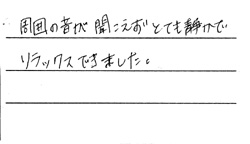 周囲の音が聞こえずとても静かで
リラックスできました。